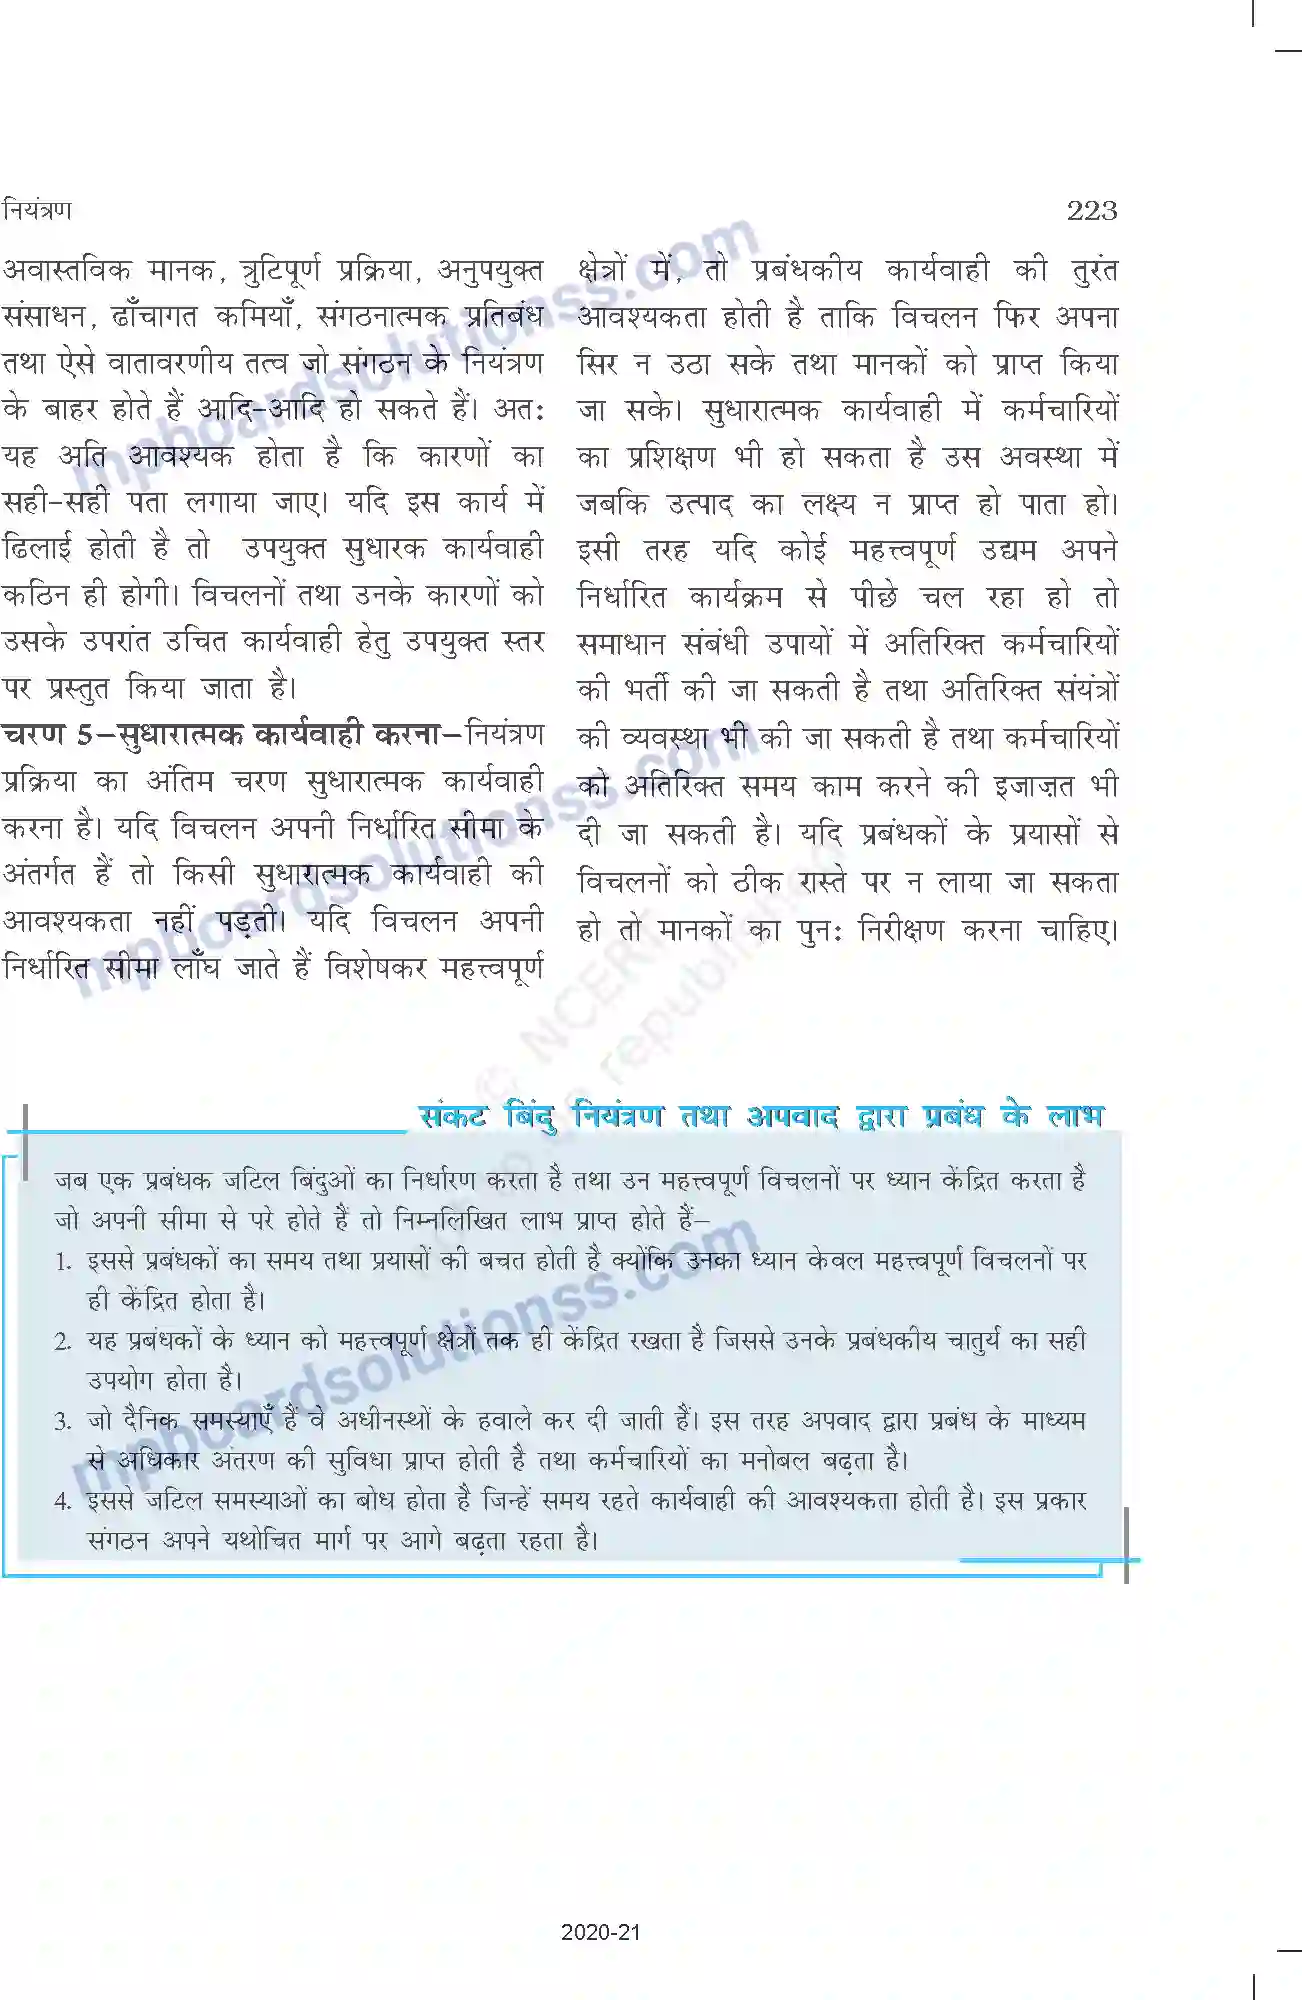 नियंत्रण
223
अवास्तविक मानक, त्रुटिपूर्ण प्रक्रिया, अनुपयुक्त
संसाधन, ढाँचागत कमियाँ, संगठनात्मक प्रतिबंध
तथा ऐसे वातावरणीय तत्व जो संगठन के नियंत्रण
के बाहर होते हैं आदि-आदि हो सकते हैं। अतः
यह अति आवश्यक होता है कि कारणों का
सही-सही पता लगाया जाए। यदि इस कार्य में
ढिलाई होती है तो उपयुक्त सुधारक कार्यवाही
कठिन ही होगी। विचलनों तथा उनके कारणों को
उसके उपरांत उचित कार्यवाही हेतु उपयुक्त स्तर
पर प्रस्तुत किया जाता है।
चरण 5–सुधारात्मक कार्यवाही करना–नियंत्रण
प्रक्रिया का अंतिम चरण सुधारात्मक कार्यवाही
करना है। यदि विचलन अपनी निर्धारित सीमा के
अंतर्गत हैं तो किसी सुधारात्मक कार्यवाही की
आवश्यकता नहीं पड़ती। यदि विचलन अपनी
निर्धारित सीमा लाँघ जाते हैं विशेषकर महत्त्वपूर्ण
क्षेत्रों में, तो प्रबंधकीय कार्यवाही की तुरंत
आवश्यकता होती है ताकि विचलन फिर अपना
सिर न उठा सके तथा मानकों को प्राप्त किया
जा सके। सुधारात्मक कार्यवाही में कर्मचारियों
का प्रशिक्षण भी हो सकता है उस अवस्था में
जबकि उत्पाद का लक्ष्य न प्राप्त हो पाता हो।
इसी तरह यदि कोई महत्त्वपूर्ण उद्यम अपने
निर्धारित कार्यक्रम से पीछे चल रहा हो तो
समाधान संबंधी उपायों में अतिरिक्त कर्मचारियों
की भर्ती की जा सकती है तथा अतिरिक्त संयंत्रों
की व्यवस्था भी की जा सकती है तथा कर्मचारियों
को अतिरिक्त समय काम करने की इजाज़त भी
दी जा सकती है। यदि प्रबंधकों के प्रयासों से
विचलनों को ठीक रास्ते पर न लाया जा सकता
हो तो मानकों का पुनः निरीक्षण करना चाहिए।
संकट बिंदु नियंत्रण तथा अपवाद द्वारा प्रबंध के लाभ
जब एक प्रबंधक जटिल बिंदुओं का निर्धारण करता है तथा उन महत्त्वपूर्ण विचलनों पर ध्यान केंद्रित करता है
जो अपनी सीमा से परे होते हैं तो निम्नलिखित लाभ प्राप्त होते हैं–
1. इससे प्रबंधकों का समय तथा प्रयासों की बचत होती है क्योंकि उनका ध्यान केवल महत्त्वपूर्ण विचलनों पर
ही केंद्रित होता है।
2. यह प्रबंधकों के ध्यान को महत्त्वपूर्ण क्षेत्रों तक ही केंद्रित रखता है जिससे उनके प्रबंधकीय चातुर्य का सही
उपयोग होता है।
3. जो दैनिक समस्याएँ हैं वे अधीनस्थों के हवाले कर दी जाती हैं। इस तरह अपवाद द्वारा प्रबंध के माध्यम
से अधिकार अंतरण की सुविधा प्राप्त होती है तथा कर्मचारियों का मनोबल बढ़ता है।
4. इससे जटिल समस्याओं का बोध होता है जिन्हें समय रहते कार्यवाही की आवश्यकता होती है। इस प्रकार
संगठन अपने यथोचित मार्ग पर आगे बढ़ता रहता है।
2020-21
mpboardsolutionss.com
mpboardsolutionss.com
mpboardsolutionss.com
© NCERT
republished